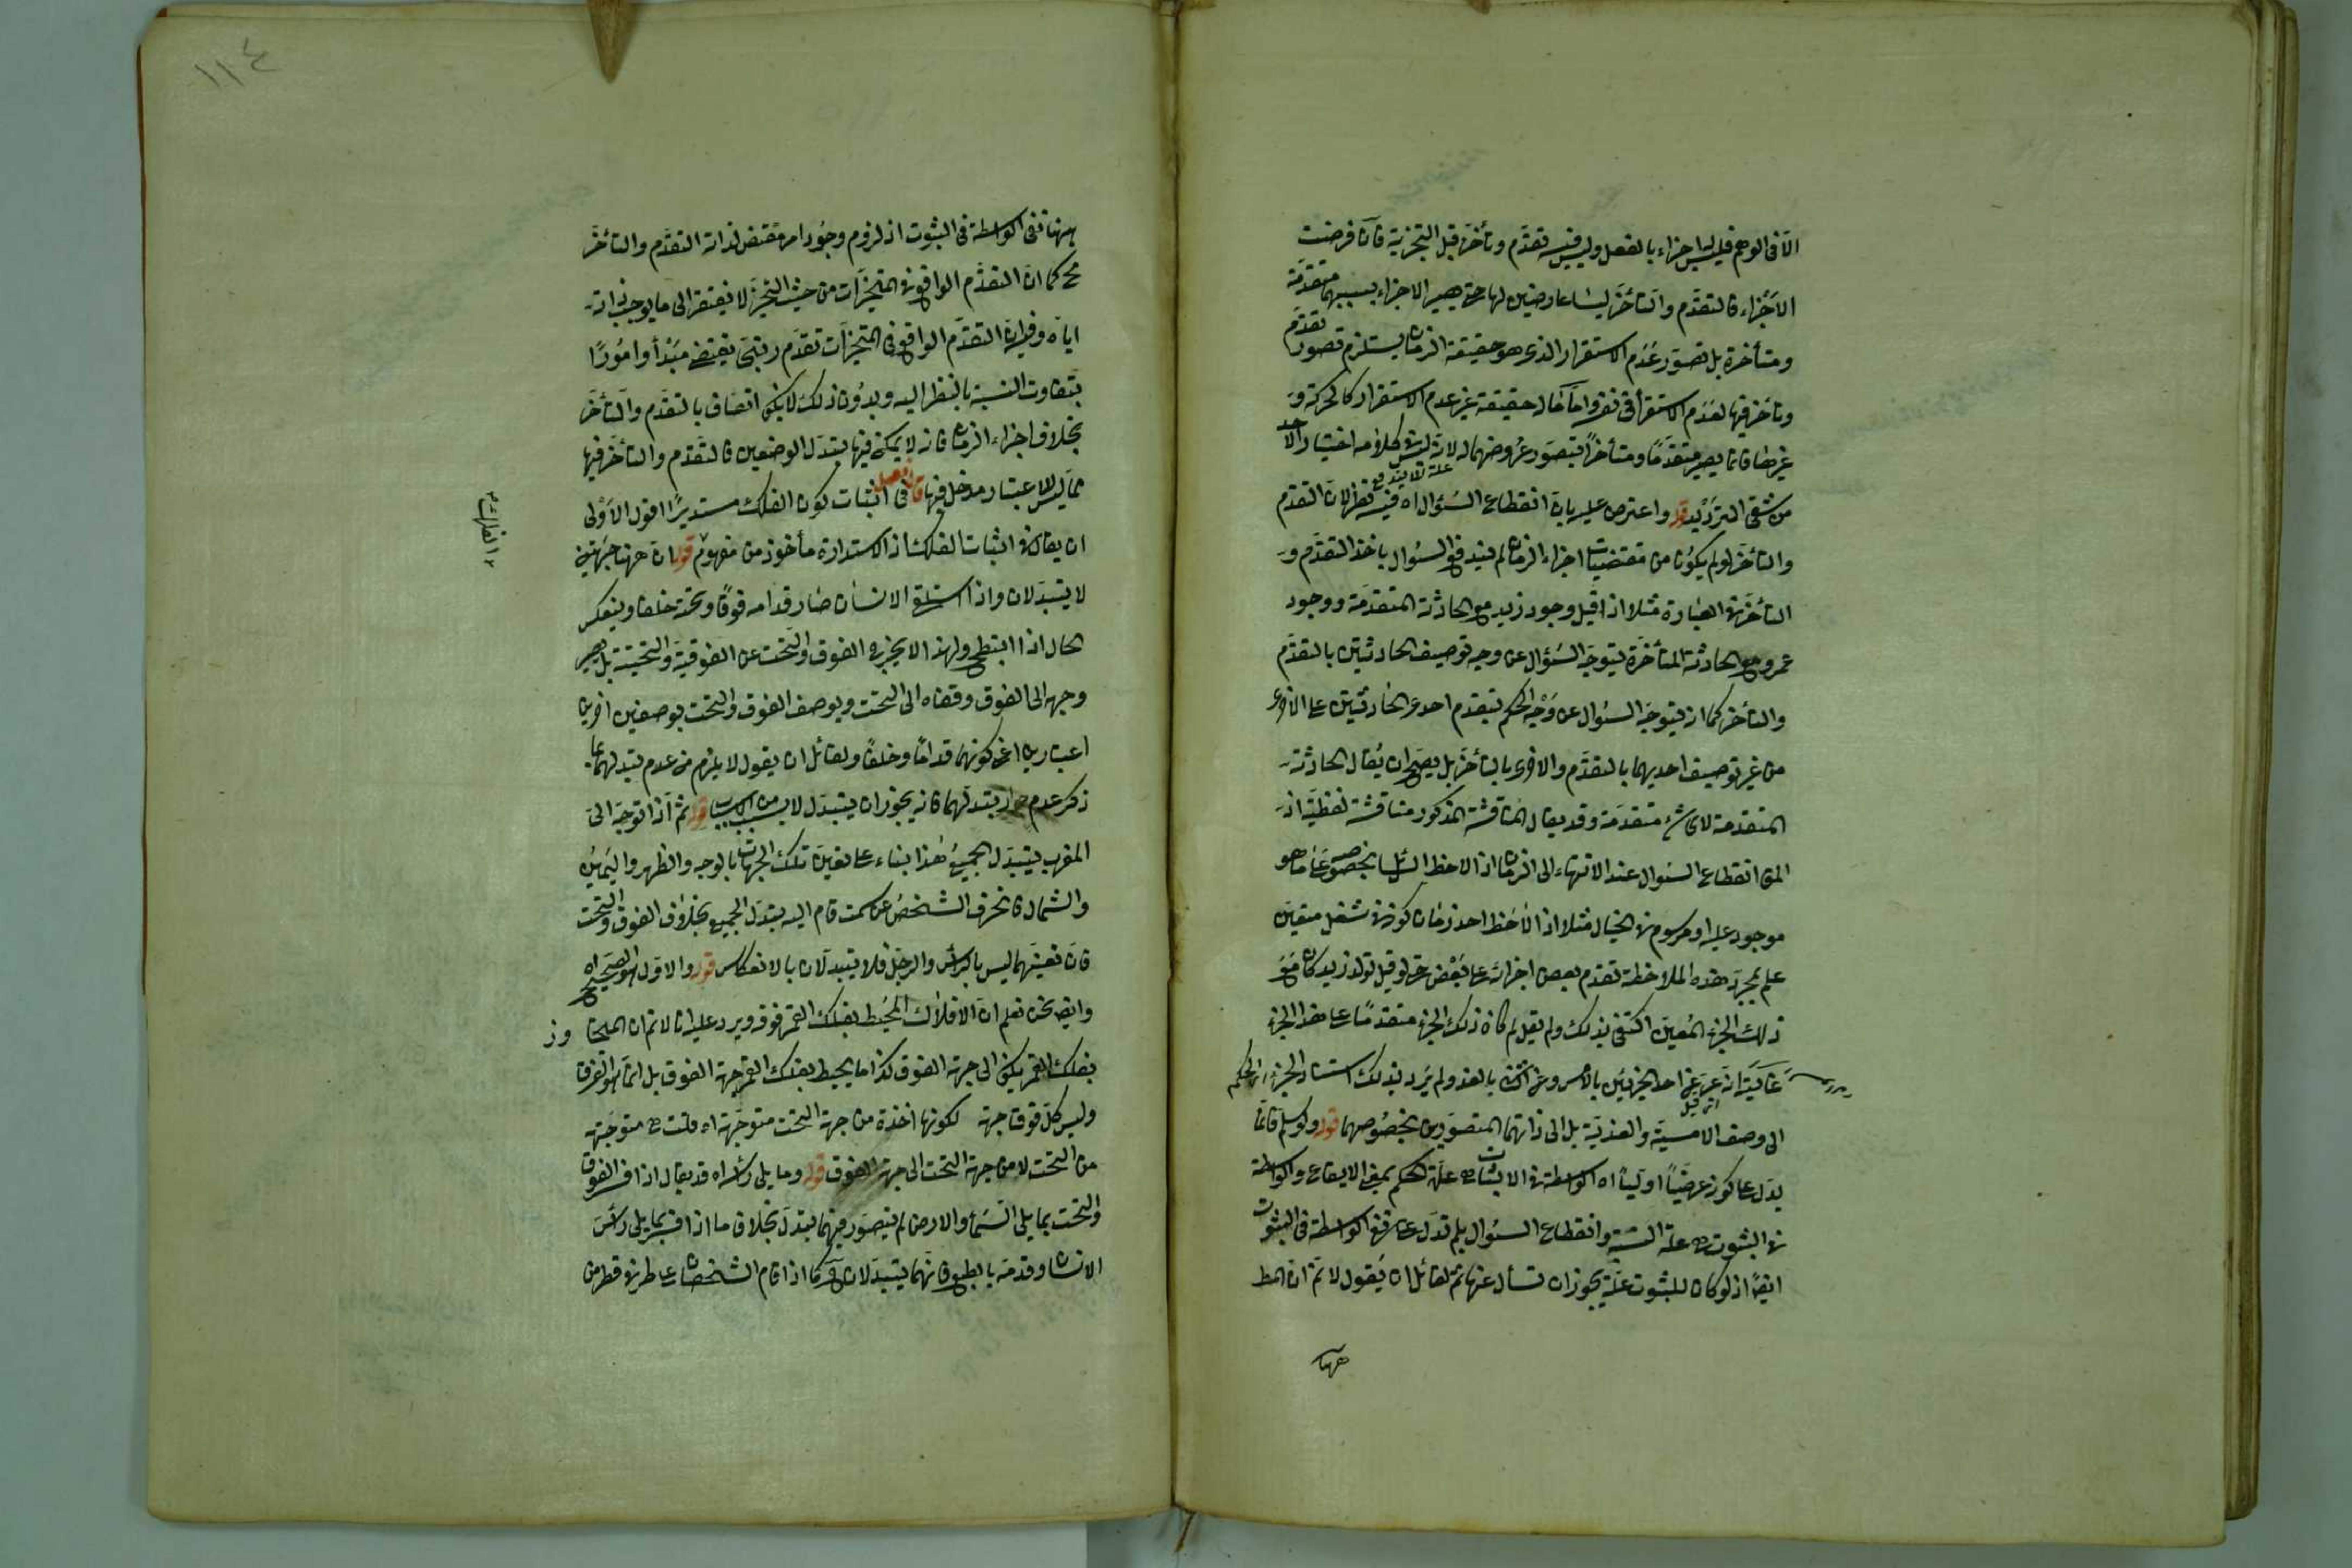 الا فى الوهم فليس اجزاء بالفعل وليس فيه تقدّم وتأخّر قبل التجزية فان فرضت
الاجزاء فالتقدّم والتأخّر ليسا عارضين لها حتى يصير الاجزاء بسببهما متقدمة
ومتأخرة بل تصوّر عدم الاستقرار الذى هو حقيقة الزمان يستلزم تصور تقدم
وتأخر فيها لعدم الاستقرار واما ما له حقيقة غير عدم الاستقرار كالحركة و
غيرها فانما يصير متقدمًا ومتأخرًا بتصور عروضهما له لانه ليس كلامه اختيار الاحد
من شقى الترديد قوله واعترض عليه بان انقطاع السؤال اه فيه نظر لان التقدم
والتأخر لو لم يكونا من مقتضيات اجزاء الزمان لم يندفع السؤال باخذ التقدّم و
التأخر فى العبارة مثلا اذا قيل وجود زيد مع الحادثة المتقدمة ووجود
عمرو مع الحادثة المتأخرة ليتوجه السؤال عن وجه توصيف الحادثتين بالتقدّم
والتأخر كما انه يتوجه السؤال عن وجه الحكم بتقدم احدى الحادثتين على الاخرى
من غير توصيف احديهما بالتقدّم والاخرى بالتأخر بل يصح ان يقال الحادثة
المتقدمة لاى شئ متقدمة وقد يقال المناقشة المذكور مناقشة لفظية اذ
المراد انقطاع السؤال عند الانتهاء الى الزمان اذا لاحظ السائل بخصوصه على ما هو
موجود عليه او مرسوم فى الخيال مثلا اذا لاحظ احد زمان كونه فى شغل متعين
علم بمجرد هذه الملاحظة تقدم بعض اجزائه على بعض حتى لو قيل تولد زيد كان مع
ذلك الجزء المعين اكتفى بذلك ولم يقل لم كان ذلك الجزء متقدمًا على هذا الجزء
غايته انه عبر عن احد الجزئين بالامس وعن الآخر بالغد ولم يرد بذلك استناد الجزء
الى وصف الامسية والغدية بل الى ذاتهما المتصورين بخصوصهما قوله ولو سلم فانما
يدل على كونه عرضيًا اوليًا اه الواسطة فى الاثبات علة الحكم بمعنى الايقاع والواسطة
فى الثبوت علة النسبة وانقطاع السؤال بلم تدل على رفع الواسطة فى الثبوت
ايضًا اذ لو كان للثبوت علة يجوز ان تسأل عنها ثم لقائل ان يقول لا نم ان المط
ههنا
١١٤
ههنا نفى الواسطة فى الثبوت اذ لزوم وجود امر مقتض لذاته التقدّم والتأخّر
مح كما ان التقدّم الواقع فى المتحيّزات من حيث التحيّز لا يفتقر الى ما يوجب لذاته
اياه وفيه ان التقدّم الواقع فى المتحيزات تقدّم رتبى يقتضى مبدأ وامورًا
بتفاوت النسبة بالنظر اليه وبدون ذلك لا يمكن اتصاف بالتقدّم والتأخّر
بخلاف اجزاء الزمان فانه لا يمكن فيها تبدل الوضعين فالتقدّم والتأخّر فيها
مما ليس للاعتبار مدخل فيها قال فصل فى اثبات كون الفلك مستديرًا اقول الاولى
ان يقال فى اثبات الفلك اذ الاستدارة مأخوذ من مفهومه قوله ان ههنا جهتين
لا يتبدلان واذا استلقى الانسان صار قدامه فوقًا وتحته خلفا وينعكس
الحال اذا انبطح ولهذا لا يخرج الفوق والتحت عن الفوقية والتحتية بل يصير
وجهه الى الفوق وقفاه الى التحت ويوصف الفوق والتحت بوصفين اخرين
اعتباريين اعنى كونهما قدامًا وخلفًا ولقائل ان يقول لا يلزم من عدم تبدلهما بما
ذكر عدم جواز تبدلهما فانه يجوز ان يتبدل لا بسبب من الاسباب قوله ثم اذا توجه الى
المغرب يتبدل الجميع هذا بناء على تعين تلك الجهات بالوجه والظهر واليمين
والشمال فانحرف الشخص عن سمت قام اليه يتبدل الجميع بخلاف الفوق والتحت
فان تعينهما ليس بالرأس والرجل فلا يتبدلان بالانعكاس قوله والاول هو الصحيح اه
وايضا نحن نعلم ان الافلاك المحيط بفلك القمر فوقه ويرد عليه انا لا نم ان المجاوز
بفلك القمر يكون الى جهة الفوق كذا ما يحيط بفلك القمر جهة الفوق بل انما هو الفوق
وليس كل فوق جهة لكونها اخذة من جهة التحت متوجهة اه قلت متوجهة
من التحت لا من جهة التحت الى جهة الفوق قوله وما يلى رأسه اه قد يقال اذا فسر الفوق
والتحت بما يلى السماء والارض لم يتصور فيهما تبدل بخلاف ما اذا فسر بما يلى رأس
الانسان وقدمه بالطبع فانهما يتبدلان كما اذا قام الشخصان على طرفى قطر من